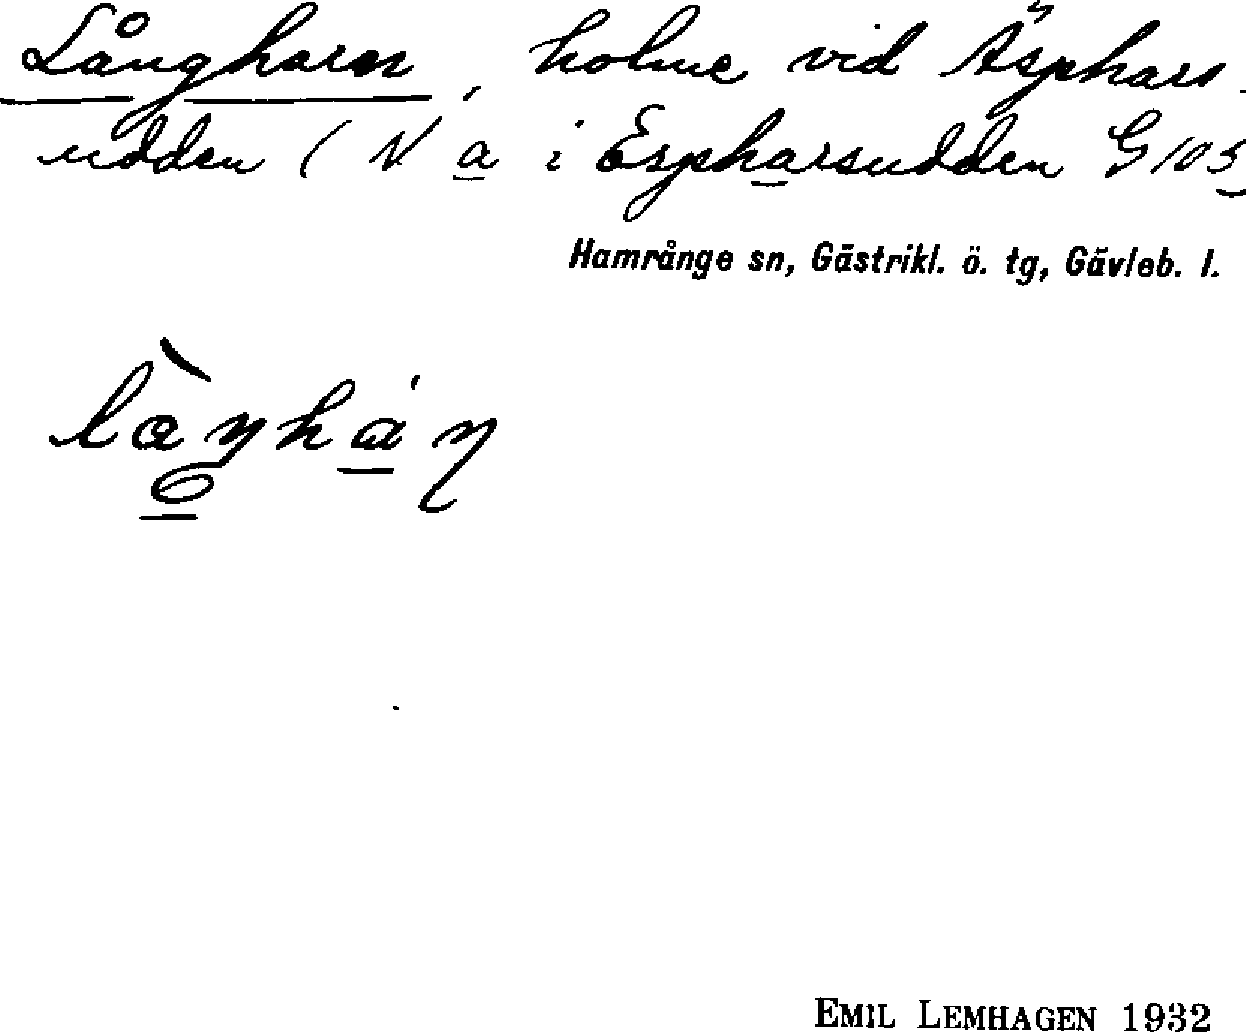 Långharn, holme vid Äsphars-
udden (N a i Espharsudden G 105
Hamrånge sn, Gästrikl. ö. tg, Gävleb. l.
EMIL LEMHAGEN 1932